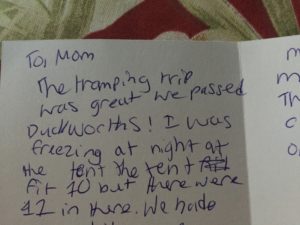 To, Mom
The tramping trip
was great we passed
Duckworths! I was
freezing at night at
the tent the tent
fit 10 but there were
12 in there. We hade